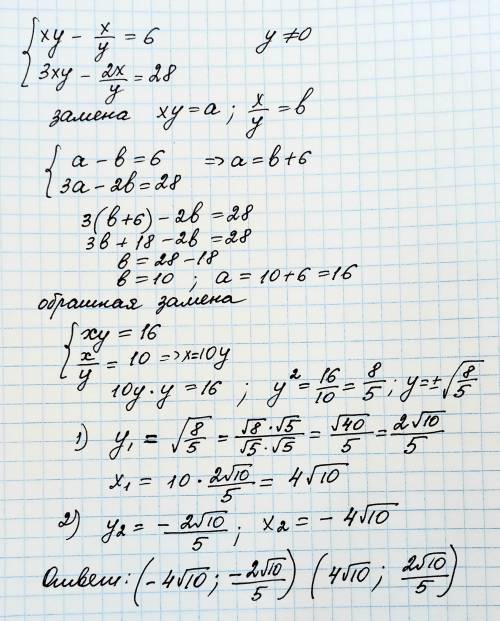 { xy - x/y = 6        y ≠ 0
{ 3xy - 2x/y = 28
замена xy = a ; x/y = b
{ a - b = 6 => a = b + 6
{ 3a - 2b = 28
3(b+6) - 2b = 28
3b + 18 - 2b = 28
b = 28 - 18
b = 10 ; a = 10 + 6 = 16
обрашная замена
{ xy = 16
{ x/y = 10 => x = 10y
10y · y = 16 ; y² = 16/10 = 8/5 ; y = ± √(8/5)
1) y₁ = √(8/5) = (√8 · √5)/(√5 · √5) = √40/5 = 2√10/5
x₁ = 10 · 2√10/5 = 4√10
2) y₂ = - 2√10/5 ; x₂ = - 4√10
Ответ: (-4√10 ; -2√10/5) (4√10 ; 2√10/5)